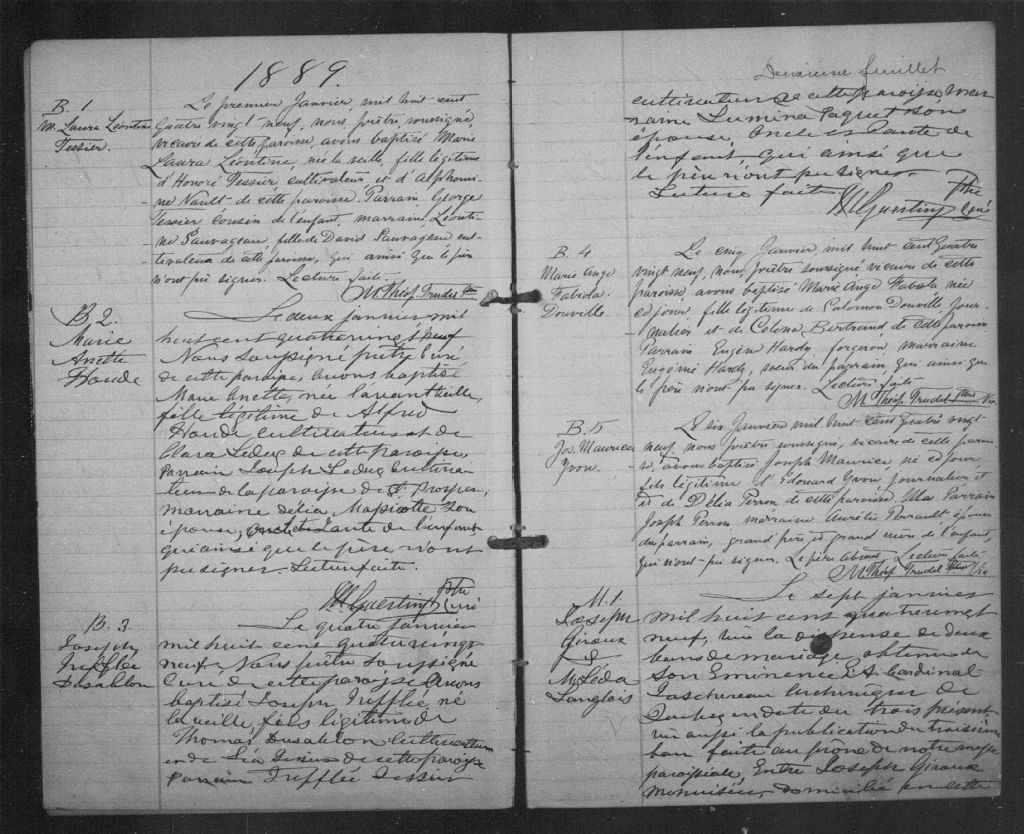 1889.
B. 1
M. Laura Léontine
Tessier.
Le premier Janvier, mil huit cent
quatre vingt neuf, nous, prêtre, soussigné,
vicaire de cette paroisse, avons baptisé Marie
Laura Léontine, née la veille, fille légitime
d'Honoré Tessier, cultivateur et d'Alphonsi-
ne Nault de cette paroisse. Parrain, George
Tessier cousin de l'enfant, marraine Léonti-
ne Sauvageau, fille de David Sauvageau cul-
tivateur de cette paroisse, qui ainsi que le père
n'ont pu signer. Lecture faite.
M Théop. Trudel Ptre
B 2.
Marie
Anette
Houde
Le deux janvier mil
huit cent quatrevingt neuf
Nous soussigné prêtre Curé
de cette paroisse, avons baptisé
Marie Anette, née l'avant veille,
fille légitime de Alfred
Houde cultivateur et de
Clara Leduc de cette paroisse,
Parrain Joseph Leduc cultiva-
teur de la paroisse de St Prosper,
marraine Délia Massicotte son
épouse, oncle et tante de l'enfant,
qui ainsi que le père n'ont
pu signer. Lecture faite.
Ptre
Curé
B. 3.
Joseph
Trefflée
Dusablon
Le quatre janvier
mil huit cent quatrevingt
neuf Nous prêtre soussigné
Curé de cette paroisse avons
baptisé Joseph Trefflée, né
la veille, fils légitime de
Thomas Dusablon cultivateur
et de Léa Tessier de cette paroisse
Parrain Trefflée Tessier
feuillet
cultivateur de cette paroisse mar-
raine Lumina Paquet son
épouse, oncle et tante de
l'enfant qui ainsi que
le père n'ont pu signer.
Lecture faite
Ptre
Curé
B. 4
Marie Ange
Fabiola
Douville.
Le cinq Janvier, mil huit cent quatre
vingt neuf, nous, prêtre soussigné vicaire de cette
paroisse, avons baptisé Marie Ange Fabiola née
ce jour, fille légitime de Salomon Douville jour-
nalier et de Colina Bertrand de cette paroisse
Parrain Eugène Hardy, forgeron, marraine
Eugénie Hardy, soeur du parrain, qui ainsi que
le père n'ont pu signer. Lecture faite
M Théop. Trudel Ptre Vic
B. 5
Jos. Maurice
Yvon.
Le six Janvier mil huit cent quatre vingt-
neuf, nous, prêtre soussigné, vicaire de cette parois-
se, avons baptisé Joseph Maurice, né ce jour,
fils légitime d'Edouard Yvon, journalier, et
de Délia Perron, de cette paroisse. Parrain
Joseph Perron, marraine Aurélie Perrault épouse
du parrain, grand père et grand mère de l'enfant,
qui n'ont pu signer. Le père absent. Lecture faite
M Théop. Trudel Ptre Vic
M. 1.
Joseph
Giroux
&
M. Léda
Langlois
Le sept janvier
mil huit cent quatrevingt
neuf, vu la dispense de deux
bans de mariage obtenue de
Son Eminence E. A. Cardinal
Taschereau Archevêque de
Québec en date du trois présent
vu aussi la publication du troisième
ban faite au prône de notre messe
paroissiale, Entre Joseph Giroux
menuisier, domicilié en cette